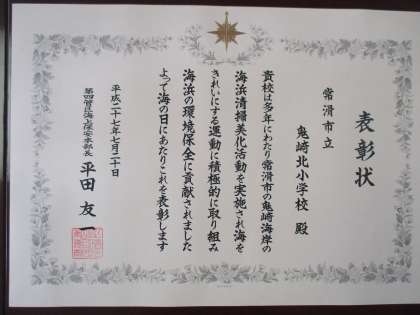 表彰状
常滑市立
鬼崎北小学校 殿
貴校は多年にわたり常滑市の鬼崎海岸の
海浜清掃美化活動を実施され海を
きれいにする運動に積極的に取り組み
海浜の環境保全に貢献されました
よって海の日にあたりこれを表彰します
平成二十七年七月二十日
第四管区海上保安本部長 平田友一